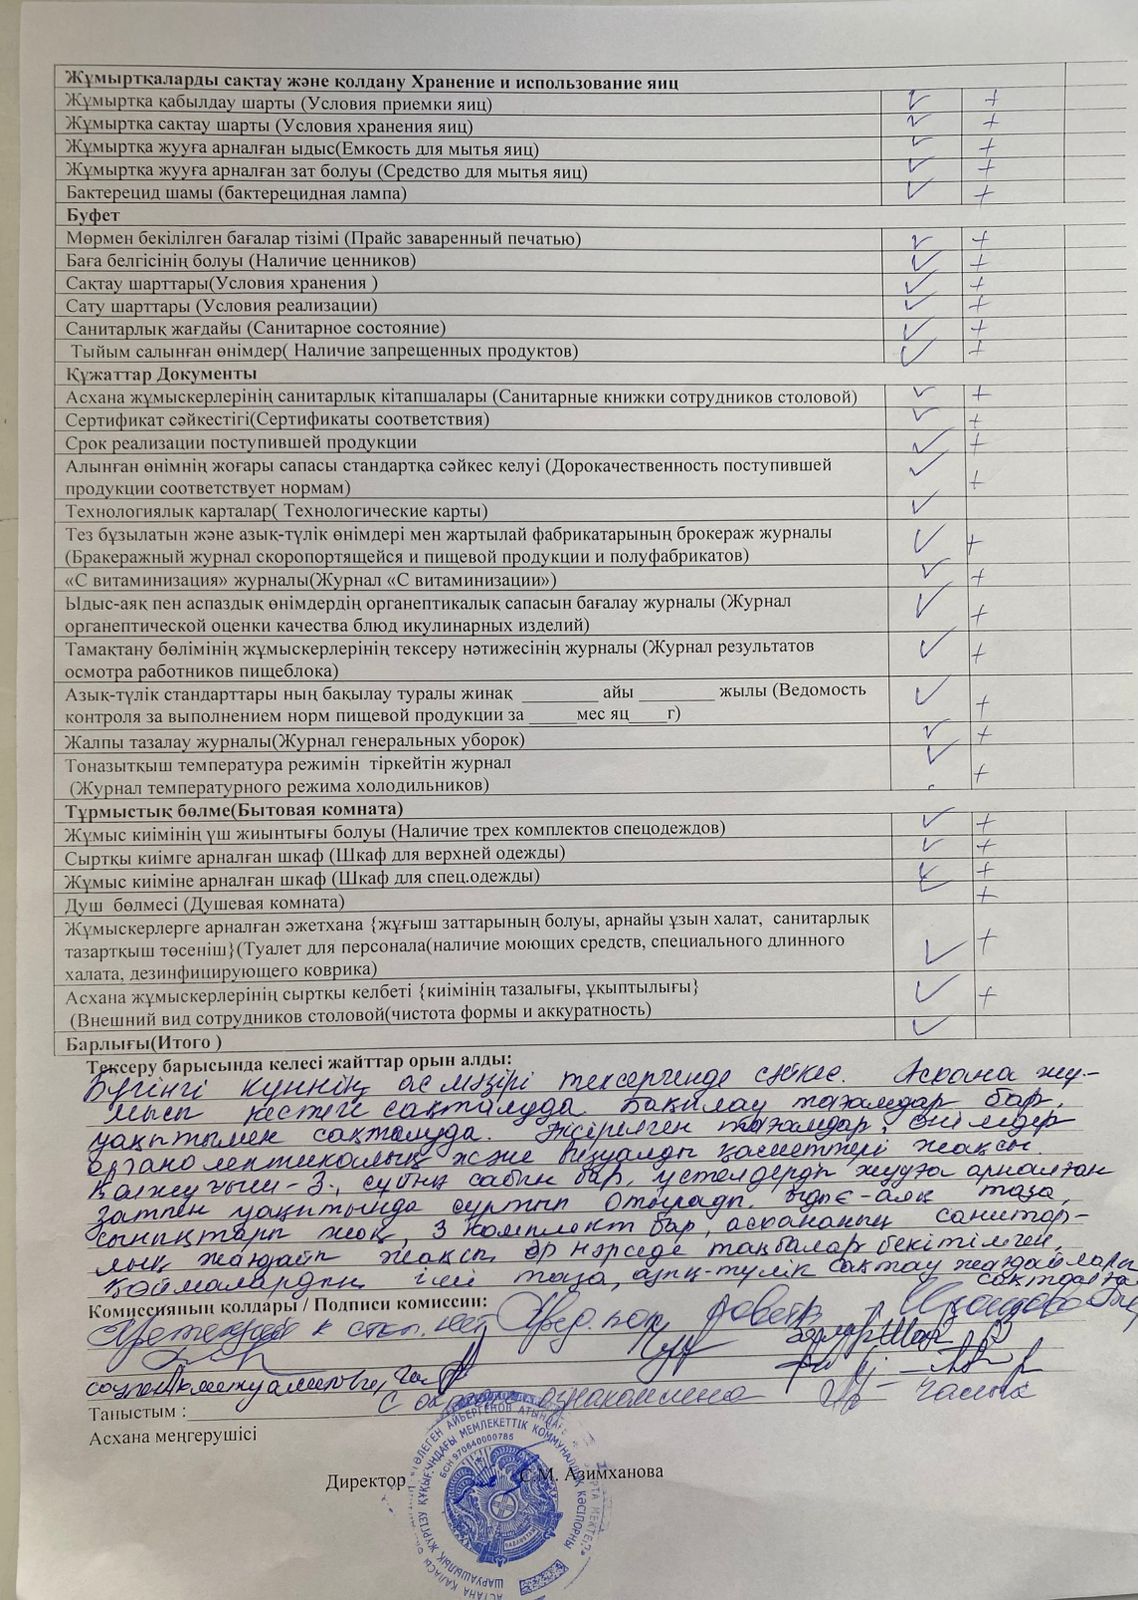 Жұмыртқаларды сақтау және қолдану Хранение и использование яиц
Жұмыртка қабылдау шарты (Условия приемки яиц) ✓ +
Жұмыртқа сақтау шарты (Условия хранения яиц) ✓ +
Жұмыртка жууға арналған ыдыс(Емкость для мытья яиц) ✓ +
Жұмыртка жууға арналған зат болуы (Средство для мытья яиц) ✓ +
Бактерецид шамы (бактерецидная лампа) ✓ +
Буфет
Мөрмен бекілілген бағалар тізімі (Прайс заваренный печатью) ✓ +
Баға белгісінің болуы (Наличие ценников) ✓ +
Сақтау шарттары(Условия хранения ) ✓ +
Сату шарттары (Условия реализации) ✓ +
Санитарлық жағдайы (Санитарное состояние) ✓ +
Тыйым салынған өнімдер( Наличие запрещенных продуктов) ✓ +
Құжаттар Документы
Асхана жұмыскерлерінің санитарлық кітапшалары (Санитарные книжки сотрудников столовой) ✓ +
Сертификат сәйкестігі(Сертификаты соответствия) ✓ +
Срок реализации поступившей продукции ✓ +
Алынған өнімнің жоғары сапасы стандартқа сәйкес келуі (Дорокачественность поступившей
продукции соответствует нормам) ✓ +
Технологиялық карталар( Технологические карты) ✓
Тез бұзылатын және азық-түлік өнімдері мен жартылай фабрикатарының брокераж журналы
(Бракеражный журнал скоропортящейся и пищевой продукции и полуфабрикатов) ✓ +
«С витаминизация» журналы(Журнал «С витаминизации») ✓ +
Ыдыс-аяқ пен аспаздық өнімдердің органептикалық сапасын бағалау журналы (Журнал
органептической оценки качества блюд икулинарных изделий) ✓ +
Тамақтану бөлімінің жұмыскерлерінің тексеру нәтижесінің журналы (Журнал результатов
осмотра работников пищеблока) ✓ +
Азық-түлік стандарттары ның бақылау туралы жинақ ________ айы ________ жылы (Ведомость
контроля за выполнением норм пищевой продукции за ______мес яц____г) ✓ +
Жалпы тазалау журналы(Журнал генеральных уборок) ✓ +
Тоназытқыш температура режимін тіркейтін журнал
(Журнал температурного режима холодильников) ✓ +
Тұрмыстық бөлме(Бытовая комната)
Жұмыс киімінің үш жиынтығы болуы (Наличие трех комплектов спецодеждов) ✓ +
Сыртқы киімге арналған шкаф (Шкаф для верхней одежды) ✓ +
Жұмыс киіміне арналған шкаф (Шкаф для спец.одежды) ✓ +
Душ бөлмесі (Душевая комната) +
Жұмыскерлерге арналған әжетхана {жұғыш заттарының болуы, арнайы ұзын халат, санитарлық
тазартқыш төсеніш}(Туалет для персонала(наличие моющих средств, специального длинного
халата, дезинфицирующего коврика) ✓ +
Асхана жұмыскерлерінің сыртқы келбеті {киімінің тазалығы, ұқыптылығы}
(Внешний вид сотрудников столовой(чистота формы и аккуратность) ✓ +
Барлығы(Итого ) ✓
Тексеру барысында келесі жайттар орын алды:
Бүгінгі күннің ас мәзірі тексергенде сәйкес. Асхана жұ-
мысы кестеге сақталуда. Бақылау тағамдар бар,
уақытымен сақталуда. тағамдар, өнімдер
органолептикалық және визуалды қасиеттері жақсы.
Қолжуғыш-3, сұйық сабын бар, үстелдерді жууға арналған
затпен уақытында сүртіп отырады. Ыдыс-аяқ таза,
сынықтары жоқ, 3 комплект бар, асхананың санитар-
лық жағдайы жақсы. Әр нәрседе таңбалар бекітілген.
Қоймалардың іші таза, азық-түлік сақтау жағдайлары
сақталған
Комиссияның қолдары / Подписи комиссии:
Таныстым : с ознакомлена
Асхана меңгерушісі
Директор С.М. Азимханова
БСН 970640000785